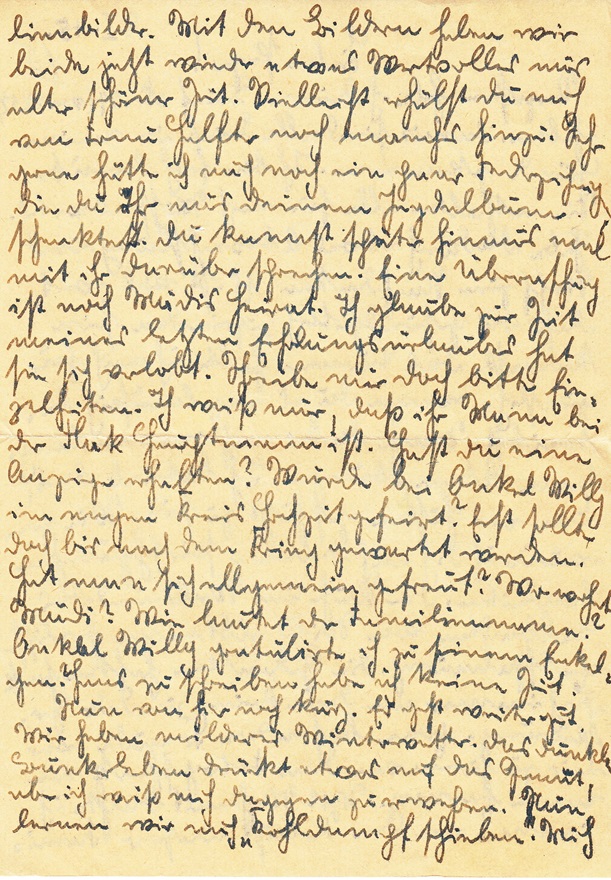 lienbilder. Mit den Bildern haben wir
beide jetzt wieder etwas Wertvolles aus
alter schöner Zeit. Vielleicht erhälst du auch
von Irmis Hälfte noch manches hinzu. Sehr
gerne hätte ich auch noch ein paar Federzeichng.
die du Ihr aus deinem Jugdalbum
schenktest. Du kannst später hinaus mal
mit ihr darüber sprechen. Eine Überraschung
ist noch Mädis Heirat. Ich glaube zur Zeit
meines letzten Erholungsurlaubes hat
sie sich verlobt. Schreibe mir doch bitte Ein-
zelheiten. Ich weiß nur, daß ihr Mann bei
der Flak Hauptmann ist. Hast du eine
Anzeige erhalten? Wurde bei Onkel Willy
im engen Kreis Hochzeit gefeirt? Erst sollte
doch bis nach dem Krieg gewartet werden.
Hat man sich allgemein gefreut? Wo wohnt
Mädi? Wie lautet der Familienname?
Onkel Willy gratulirte ich zu seinem Enkel-
chen. Ihnen zu schreiben habe ich keine Zeit.
Nun von hier noch kurz. Es geht weiter gut.
Wir haben milderes Winterwetter. Das dunkle
Bunkerleben drückt etwas auf das Gemüt,
aber ich weiß mich dagegen zu erwehren. Nun
lernen wir auch „Kohldampf schieben". Mich